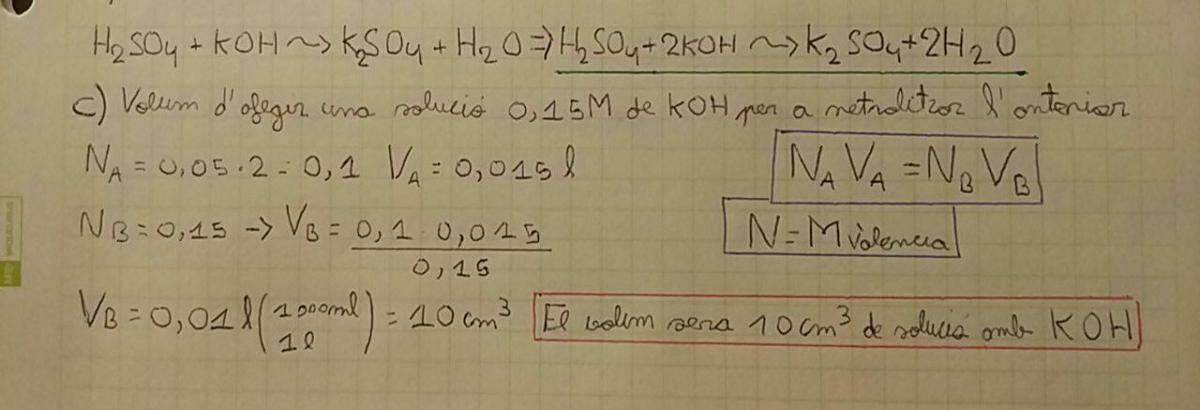 H₂SO₄ + KOH ⇝ K₂SO₄ + H₂O ⇒ H₂SO₄ + 2KOH ⇝ K₂SO₄ + 2H₂O
c) Volum d'afegir una solució 0,15M de KOH per a netralitzar l'anterior
N_A = 0,05 · 2 = 0,1 V_A = 0,015 l
N_A V_A = N_B V_B
N_B = 0,15 -> V_B = 0,1 0,015 / 0,15
N = M valencia
V_B = 0,01 l (1000ml / 1l) = 10 cm³
El volum sera 10 cm³ de solució amb KOH